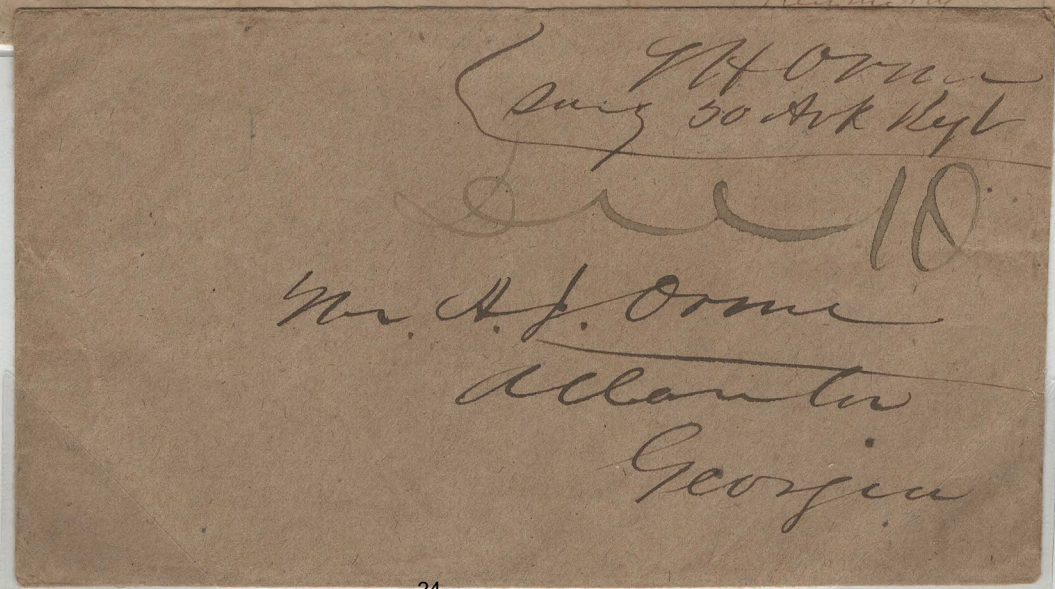 H Orme
Surg 30 Ark Regt
Due 10
Mr. A. J. Orme
Atlanta
Georgia
24